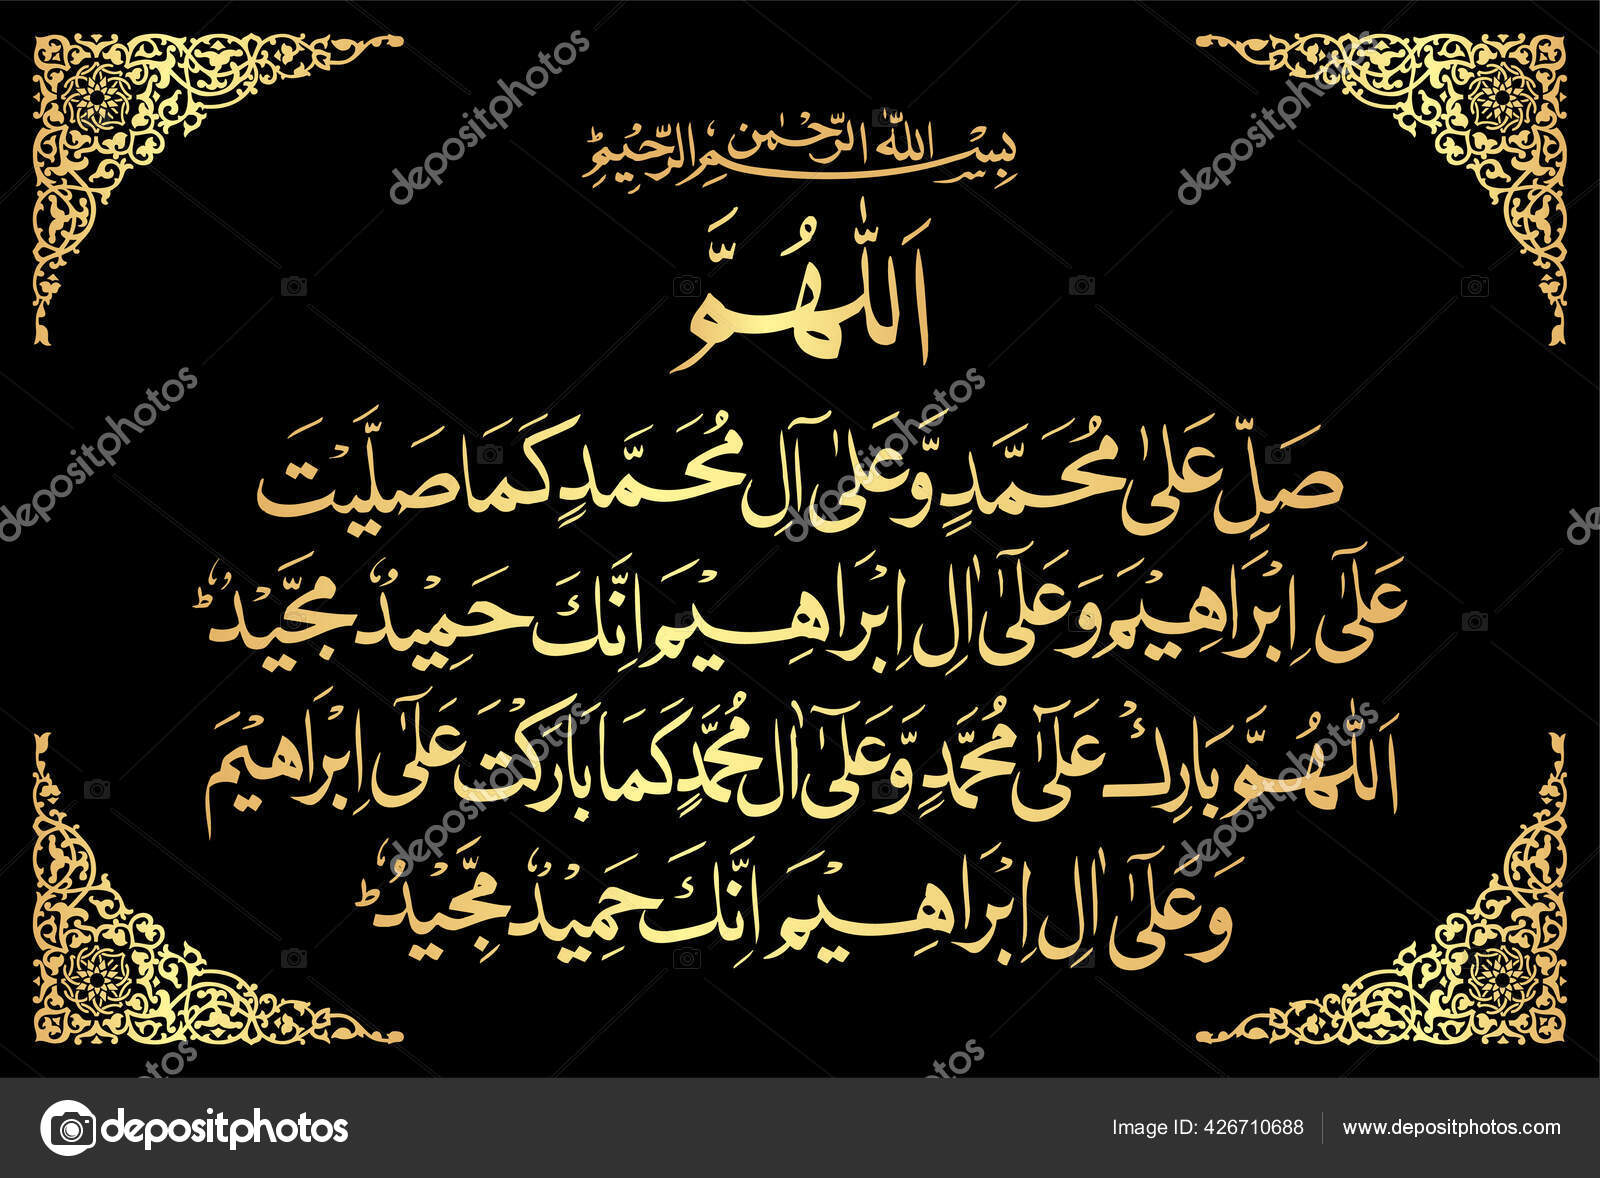 بِسْــمِ اللّٰهِ الرَّحْمٰنِ الرَّحِيْمِ
اَللّٰهُمَّ
صَلِّ عَلٰى مُحَمَّدٍ وَّعَلٰى آلِ مُحَمَّدٍ كَمَا صَلَّيْتَ
عَلٰٓى اِبْرَاهِيْمَ وَعَلٰٓى اٰلِ اِبْرَاهِيْمَ اِنَّكَ حَمِيْدٌ مَّجِيْدٌ ؕ
اَللّٰهُمَّ بَارِكْ عَلٰٓى مُحَمَّدٍ وَّعَلٰٓى اٰلِ مُحَمَّدٍ كَمَا بَارَكْتَ عَلٰٓى اِبْرَاهِيْمَ
وَعَلٰٓى اٰلِ اِبْرَاهِيْمَ اِنَّكَ حَمِيْدٌ مَّجِيْدٌ ؕ
depositphotos
Image ID: 426710688 www.depositphotos.com